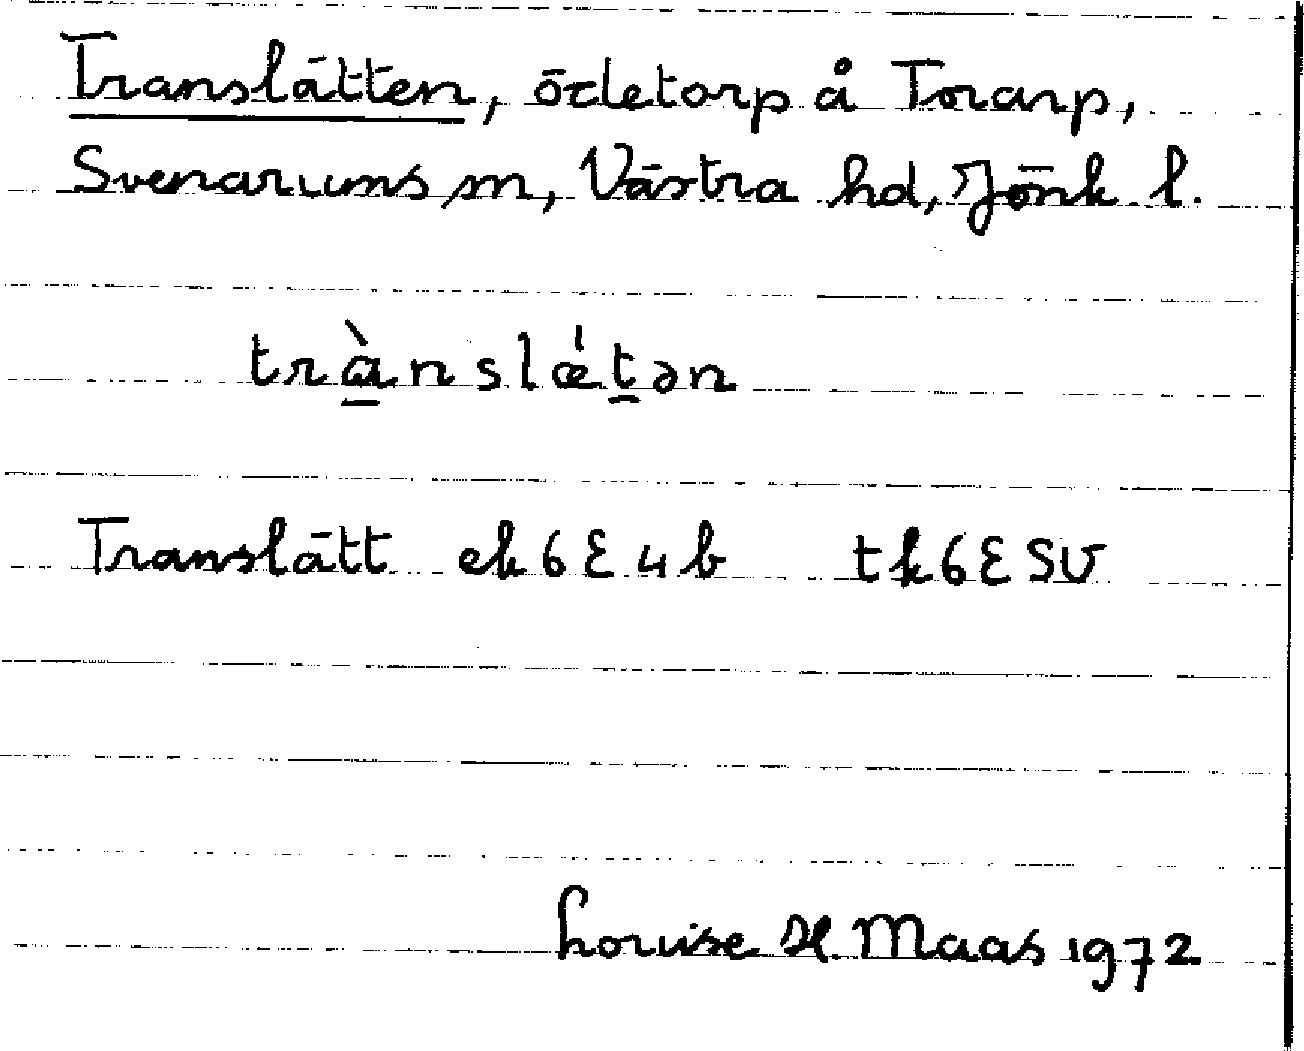 Translätten, ödetorp å Torarp,
Svenarums sn, Västra hd, Jönk l.
trànslǽtən
Translätt ek 6 E 4 b tk 6 E SV
Louise H. Maas 1972